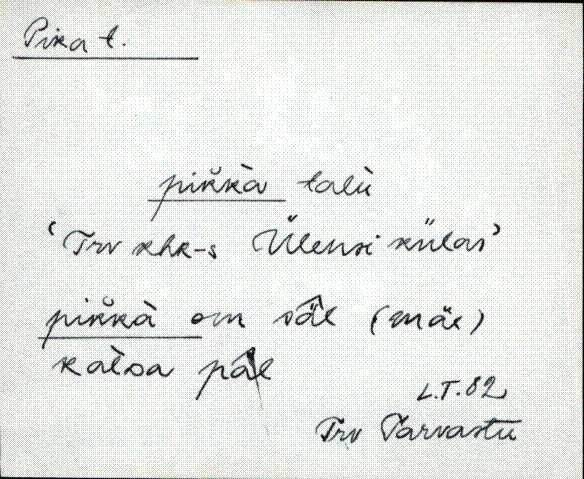 Pika t.
pik̆kà talù
'Trv khk-s Ülensi külas'
pik̆kà om sä̂l (mäe)
kalda pä̂l
L.T. 82
Trv Tarvastu